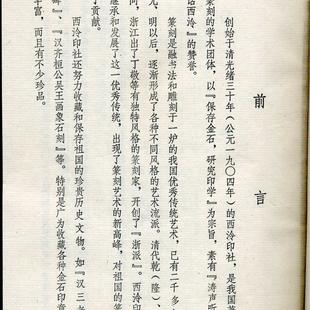 前言
创始于清光绪三十年（公元一九〇四年）的西泠印社，是我国
篆刻的学术团体，以『保存金石，研究印学』为宗旨，素有『涛声
话西泠』的赞誉。
篆刻是融书法和雕刻于一炉的我国优秀传统艺术，已有二千多
元、明以后，逐渐形成了各种不同风格的艺术流派。清代乾（隆）、
间，浙江出了丁敬等有独特风格的篆刻家，开创了『浙派』。西泠印
继承和发展了这一优秀传统，出现了篆刻艺术的新高峰，对祖国的篆
了贡献。
西泠印社还努力收藏和保存祖国的珍贵历史文物。如『汉三老
碑』、『汉齐桓公吴王画象石刻』等。特别是广为收藏各种金石印章
丰富，而且有不少珍品。